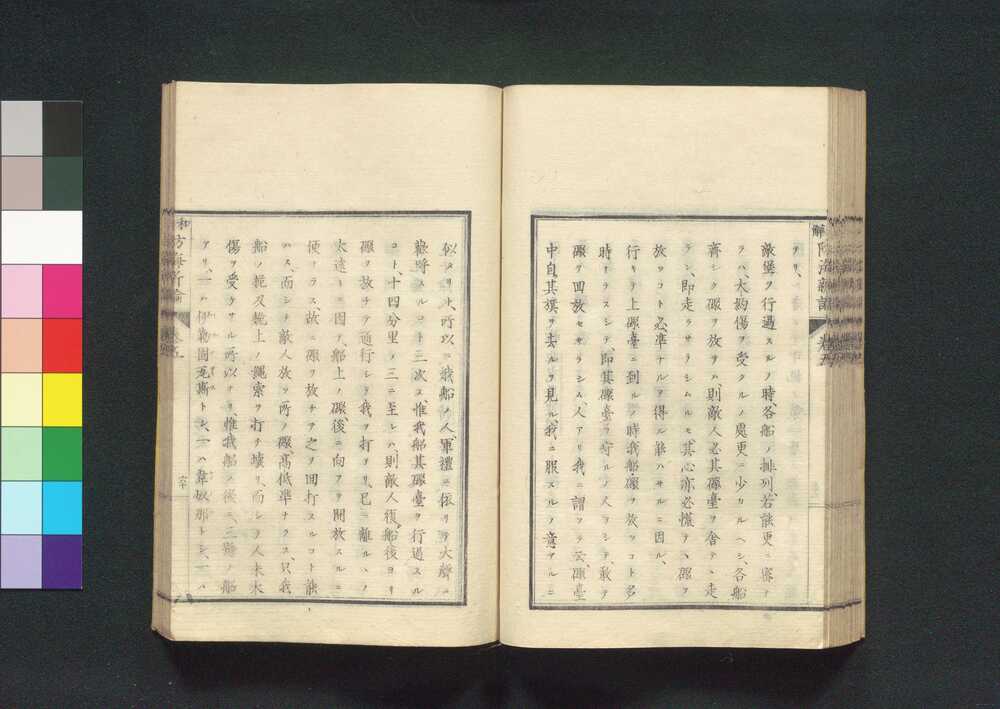 ヲリ、
敵堡ヲ行過スルノ時、各船ノ排列、若能更ニ密ナ
ラハ、大約傷ヲ受クルノ處更ニ少カルヘシ、各船
齊シク礮ヲ放ツハ、則敵人必其礮臺ヲ舍テヽ走
ラン、即走ラサラシムルモ其心亦必慌テヽ礮ヲ
放ツコト必準ナルヲ得ル能ハサルニ因ル、
行キリ上礮臺ニ到ルノ時我船礮ヲ放ツコト多
時ナラスシテ、即其礮臺ヲ守ルノ人ヲシテ、敢テ
礮ヲ回放セサラシム、人アリ我ニ謂ツテ云礮臺
中自其旗ヲ去ルヲ見ル、我ニ服スルノ意アルニ
似タリト、所以ニ我船ノ人、軍禮ニ依リテ大聲ニ
歡呼スルコト三次ス、惟我船其礮臺ヲ行過スル
コト、十四分里ノ三ニ至レハ、則敵人復船後ヨリ
礮ヲ放チテ通行シテ我ヲ打テリ、已ニ離ルヽノ
太遠キニ因テ、船上ノ礮、後ニ向フテ開放スルニ
便ナラス、故ニ礮ヲ放チテ之ヲ回打スルコト能
ハス、而シテ敵人放ツ所ノ礮、高低準ナラス、只我
船ノ桅及桅上ノ繩索ヲ打チ壞リ、而シテ人未太
傷ヲ受ケサル所以ナリ、惟我船ノ後ニ、三號ノ船
アリ、一ハ伊勒固瓦斯ト云、一ハ韋奴那ト云、一ハ
六十